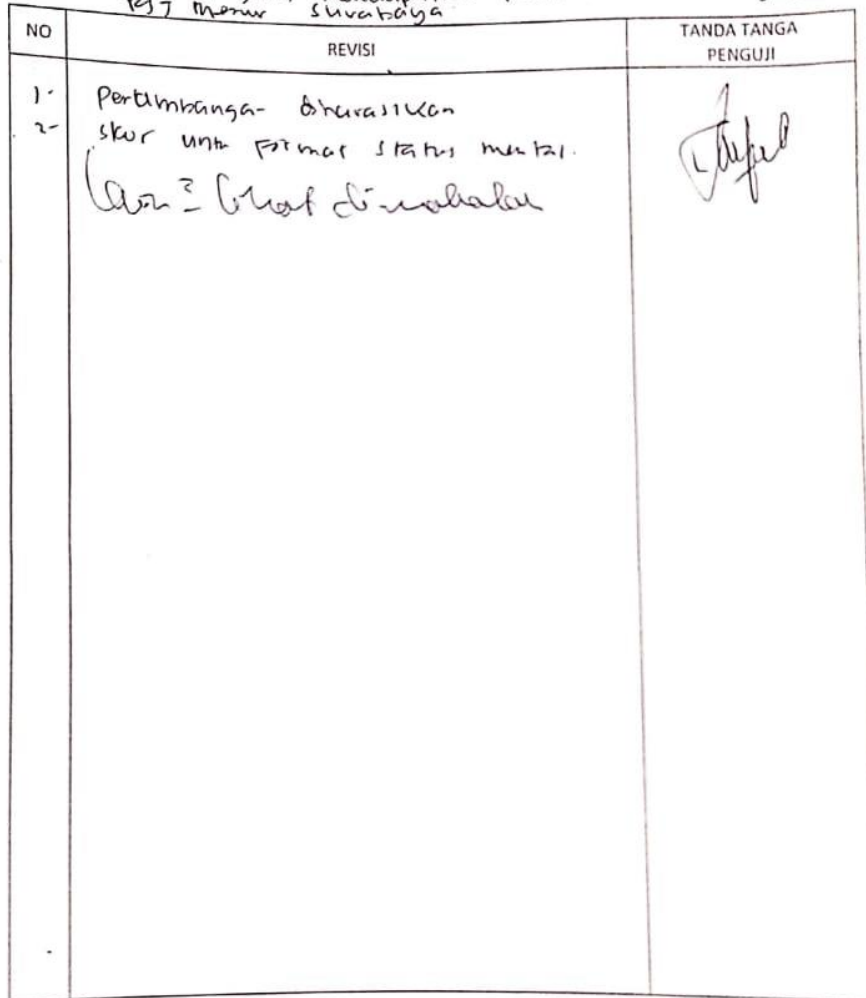 RSJ Menur Surabaya
NO
REVISI
TANDA TANGA
PENGUJI
1- Pertimbangan- dinarasikan
2- skor untu format status mental.
Lain2 lihat di makalah